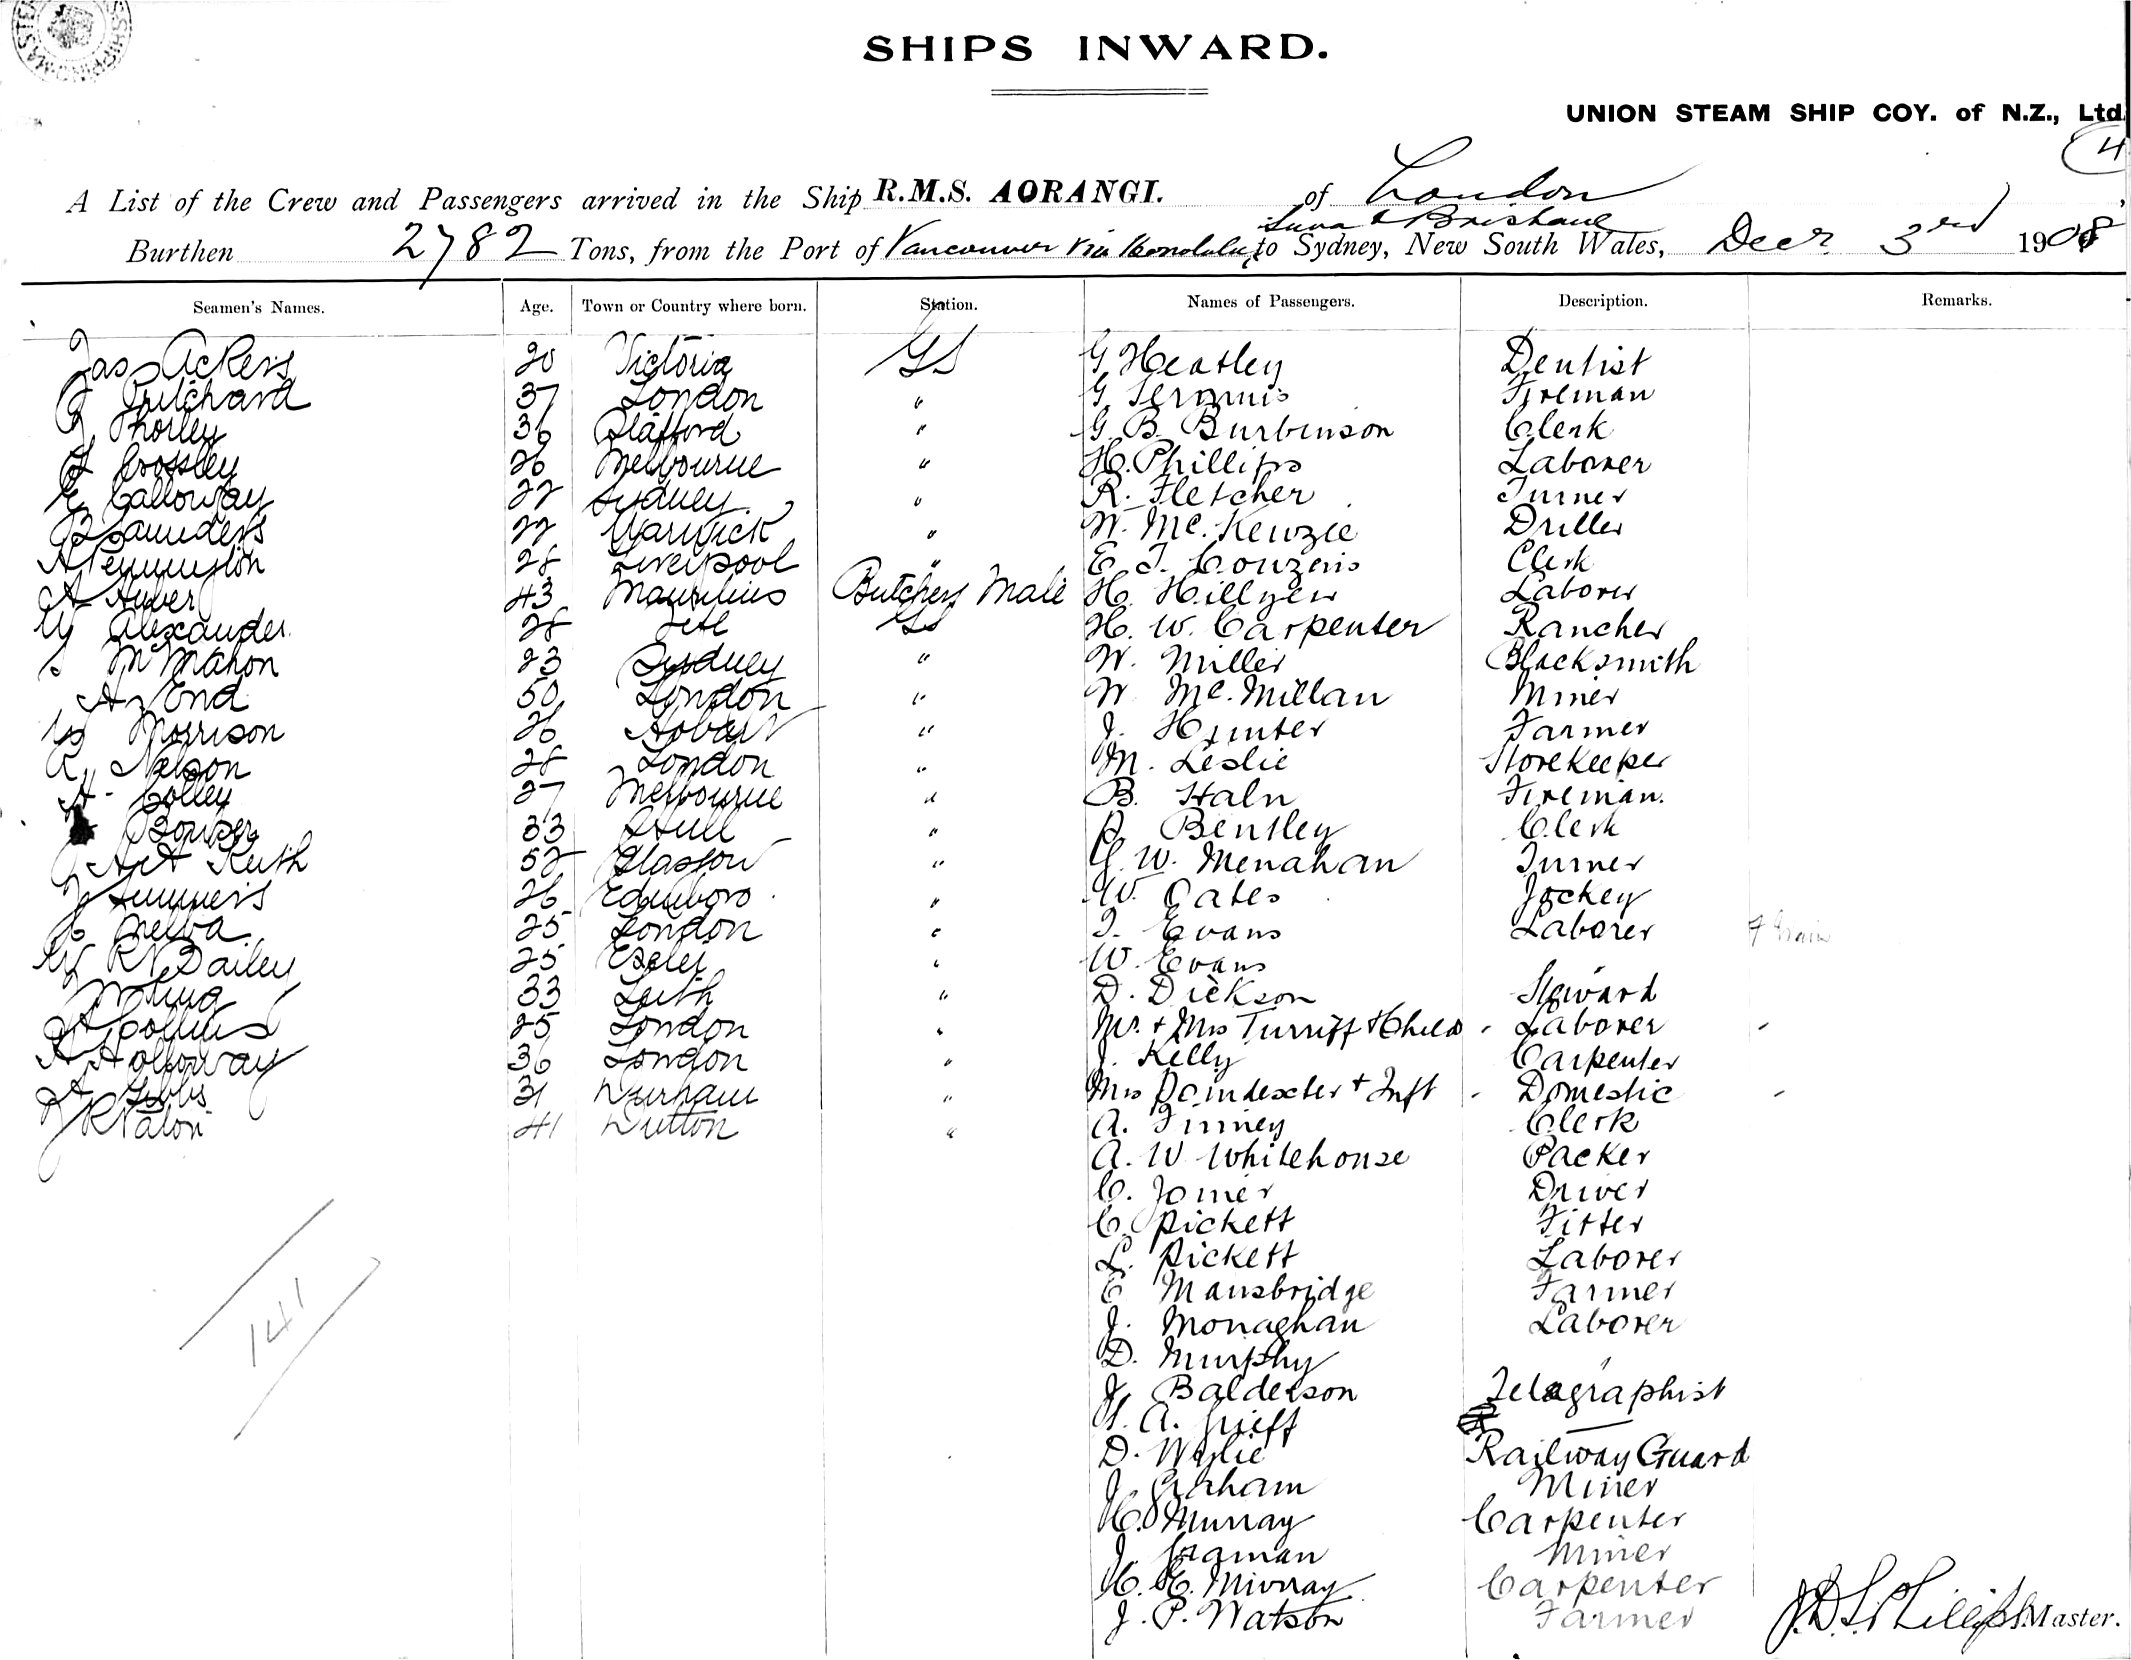 SHIPS INWARD.
UNION STEAM SHIP COY. of N.Z., Ltd
4
A List of the Crew and Passengers arrived in the Ship R.M.S. AORANGI. of London
Suva & Brisbane
Burthen 2782 Tons, from the Port of Vancouver via Honolulu, to Sydney, New South Wales, Decr. 3rd 1908
Seamen's Names. Age. Town or Country where born. Station. Names of Passengers. Description. Remarks.
Jas Ackers 20 Victoria GS G Heatley Dentist
Pritchard 37 London " G. Fireman
Thorley 36 Stafford " G. B. Burbinson Clerk
Crossley 26 Melbourne " H. Phillips Laborer
E Calloway 22 Sydney " R. Fletcher Turner
B Saunders 22 Warwick " W. Mc.Kenzie Driller
A Pennington 28 Liverpool " E. J. Couzens Clerk
A 43 Mauritius Butchers Mate H. Hillyer Laborer
W Alexander 28 GS H. W. Carpenter Rancher
S McMahon 23 Sydney " W. Miller Blacksmith
A End 50 London " W Mc.Millan Miner
W Morrison 26 Hobart " J. Hunter Farmer
R. Nelson 28 London " M. Leslie Storekeeper
A. Colley 27 Melbourne " B. Haln Fireman.
33 Hull " Bentley Clerk
Keith 52 Glasgow " G. W. Menahan Turner
Summers 26 Edinboro " W. Oates Jockey
Melva 25 London " T. Evans Laborer
W R Dailey 25 " W. Evans
33 Leith " D. Dickson Steward
A Collins 25 London " Mr. + Mrs Turriff + Child - Laborer -
A Holloway 36 London " J. Kelly Carpenter
A Gibbs 31 Durham " Mrs Poindexter + Inft - Domestic -
41 Dutton " A. Finney Clerk
A. W Whitehouse Packer
C. Joiner Driver
C. Pickett Fitter
L. Pickett Laborer
E Mansbridge Farmer
J. Monaghan Laborer
D. Murphy "
J. Balderson Telegraphist
H. A. Grieff —
D. Wylie Railway Guard
J Graham Miner
H. Murray Carpenter
J. Miner
H. H. Murray Carpenter
J. P. Watson Farmer
141
J.D.S. Phillips Master.